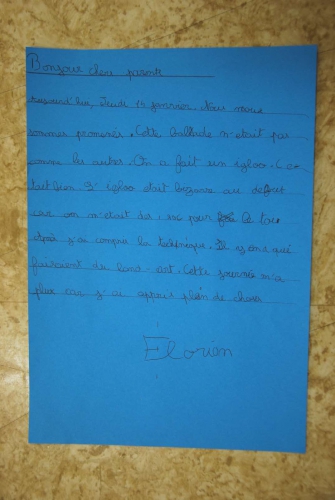 Bonjour chers parents
aujourd'hui, Jeudi 15 janvier. Nous nous
sommes promenés. Cette ballade n'était pas
comme les autres. On a fait un igloo. C'e
tait bien. L'igloo était bizarre au debut
car on n'était dix, sur pour le tas
après j'ai compris la technique. Il y en a qui
faisaient du land-art. Cette journée m'a
plus car j'ai appris plein de chose
Florian